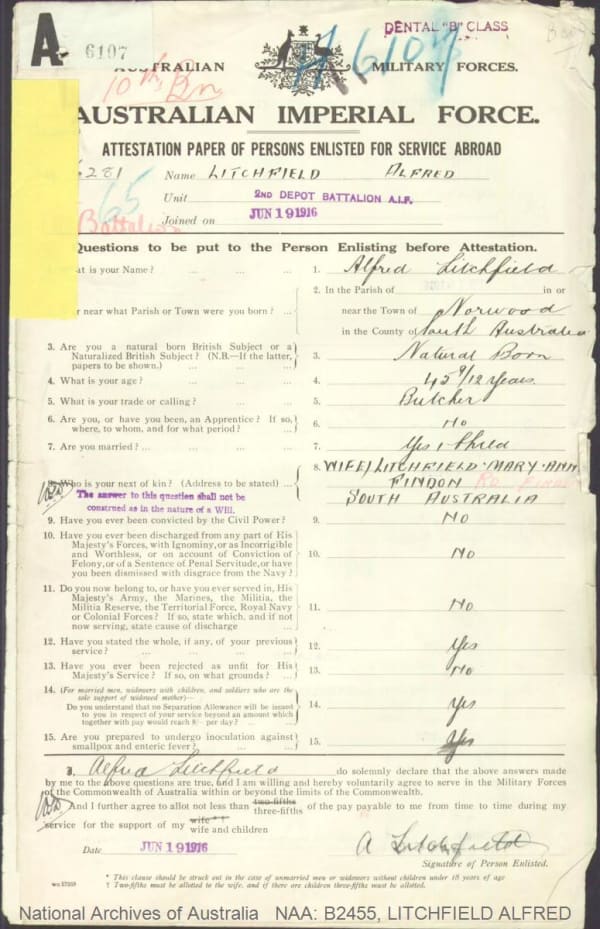 DENTAL "B" CLASS
A. 6107
6107
AUSTRALIAN MILITARY FORCES.
10th Bn
AUSTRALIAN IMPERIAL FORCE.
ATTESTATION PAPER OF PERSONS ENLISTED FOR SERVICE ABROAD
281 Name LITCHFIELD ALFRED
65
Unit 2ND DEPOT BATTALION A.I.F.
Battalion
Joined on JUN 19 1916
Questions to be put to the Person Enlisting before Attestation.
at is your Name? ... ... ... 1. Alfred Litchfield
2. In the Parish of in or
r near what Parish or Town were you born? ... near the Town of Norwood
in the County of South Australia
3. Are you a natural born British Subject or a
Naturalized British Subject? (N.B.—If the latter,
papers to be shown.) ... ... 3. Natural Born
4. What is your age? ... ... ... 4. 45 9/12 years
5. What is your trade or calling? ... ... 5. Butcher
6. Are you, or have you been, an Apprentice? If so,
where, to whom, and for what period? ... 6. No
7. Are you married? ... ... ... 7. Yes 1 child
8. Who is your next of kin? (Address to be stated) ... 8. WIFE/LITCHFIELD MARY ANN
The answer to this question shall not be
construed as in the nature of a Will.
FINDON
SOUTH AUSTRALIA
9. Have you ever been convicted by the Civil Power? 9. NO
10. Have you ever been discharged from any part of His
Majesty's Forces, with Ignominy, or as Incorrigible
and Worthless, or on account of Conviction of
Felony, or of a Sentence of Penal Servitude, or have
you been dismissed with disgrace from the Navy? 10. NO
11. Do you now belong to, or have you ever served in, His
Majesty's Army, the Marines, the Militia, the
Militia Reserve, the Territorial Force, Royal Navy
or Colonial Forces? If so, state which, and if not
now serving, state cause of discharge ... 11. No
12. Have you stated the whole, if any, of your previous
service? ... ... ... 12. Yes
13. Have you ever been rejected as unfit for His
Majesty's Service? If so, on what grounds? ... 13. No
14. (For married men, widowers with children, and soldiers who are the
sole support of widowed mother)—
Do you understand that no Separation Allowance will be issued
to you in respect of your service beyond an amount which
together with pay would reach 8/- per day? ... 14. Yes
15. Are you prepared to undergo inoculation against
smallpox and enteric fever? ... ... 15. Yes
I, Alfred Litchfield do solemnly declare that the above answers made
by me to the above questions are true, and I am willing and hereby voluntarily agree to serve in the Military Forces
of the Commonwealth of Australia within or beyond the limits of the Commonwealth.
And I further agree to allot not less than two-fifths
three-fifths of the pay payable to me from time to time during my
service for the support of my wife *†
wife and children
A Litchfield
Date JUN 19 1916
Signature of Person Enlisted.
* This clause should be struck out in the case of unmarried men or widowers without children under 18 years of age
† Two-fifths must be allotted to the wife, and if there are children three-fifths must be allotted.
National Archives of Australia NAA: B2455, LITCHFIELD ALFRED